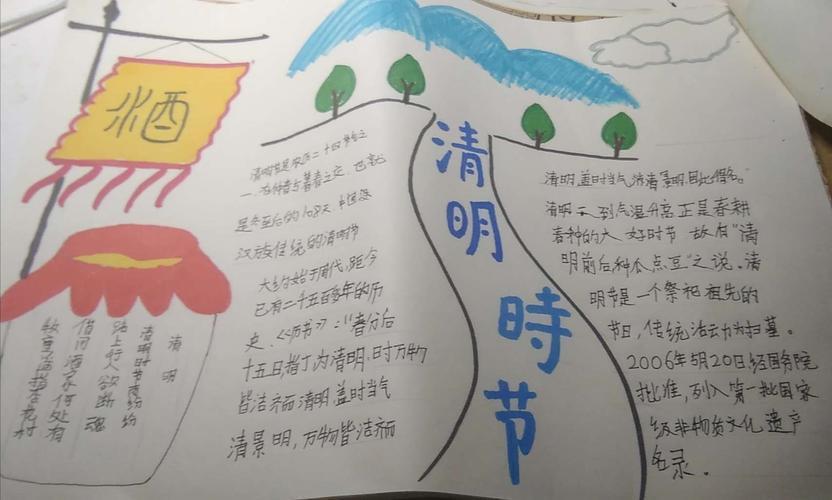 酒
清明
清明时节雨纷纷
路上行人欲断魂
借问酒家何处有
牧童遥指杏花村
清明节是农历二十四节气之
一,在仲春与暮春之交,也就
是冬至后的108天 中国汉
汉族传统的清明节
大约始于周代,距今
已有二千五百多年的历
史。《历书》:"春分后
十五日,指丁为清明,时万物
皆洁齐而清明,盖时当气
清景明,万物皆洁齐而
清明
時节
清明,盖时当气清景明,因此得名。
清明一到气温升高正是春耕
春种的大好时节 故有"清
明前后种瓜点豆"之说。清
明节是一个祭祀祖先的
节日,传统活动为扫墓。
2006年5月20日,经国务院
批准,列入第一批国家
级非物质文化遗产
名录。